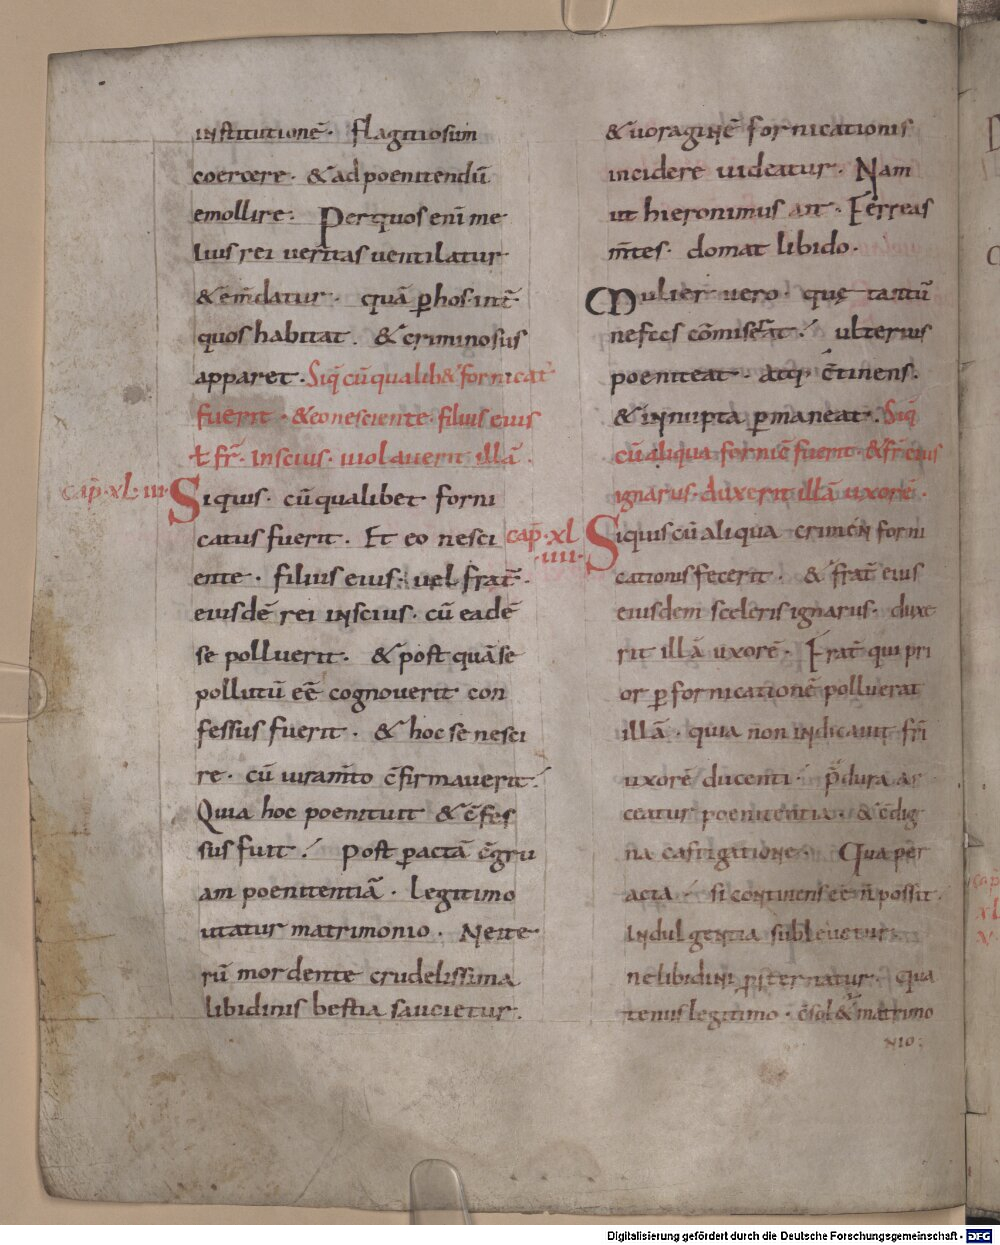 institutionē· flagitiosum
coercere· & ad poenitendū
emollire· Per quos eni me
lius rei veritas ventilatur
& em̄datur· quā ꝑ hos int̄
quos habitat· & criminosus
apparet· Siq̄ cū qualib& fornicat
fuerit· & eo nesciente filius eius
ł fr̄· inscius· violaverit illā·
cap̄·XL·III·
Siquis· cū qualibet forni
catus fuerit· Et eo nesci
ente· filius eius· vel frat̄·
eiusdē rei inscius· cū eadē
se polluerit· & post quā se
pollutū eē cognoverit con
fessus fuerit· & hoc se nesci
re· cū iuram̄to c̄firmaverit·
Quia hoc poenituit & c̄fes
sus fuit· Post ꝑactā c̄gru
am poenitentiā· legitimo
utatur matrimonio· Ne ite
rū mordente crudelissima
libidinis bestia saucietur·
& uoraginē fornicationis
incidere uideatur· Nam
ut hieronimus ait· Ferreas
m̄tes· domat libido·
Mulier uero· quę tantū
nefas cōmiserat· ulterius
poeniteat· atq· c̄tinens·
& innupta ꝑmaneat· Siq̄
cū aliqua fornic̄ fuerit· & fr̄ eius
ignarus· duxerit illā uxorē·
cap̄·XL
IIII·
Siquis cū aliqua crimen forni
cationis fecerit· & frat̄ eius
eiusdem sceleris ignarus· duxe
rit illā uxorē· Frat̄ qui pri
or ꝑ fornicationē polluerat
illā· quia non indicauit fr̄i
uxorē ducenti· p̄dura ar
ceatur poenitentia· & c̄dig
na castigatione· Qua per
acta· si continens eē n̄ possit·
indulgentia subleuetur·
ne libidini ꝓsternatur· qua
tenus legitimo· c̄sol&ur matrimo
nio:
Digitalisierung gefördert durch die Deutsche Forschungsgemeinschaft - DFG